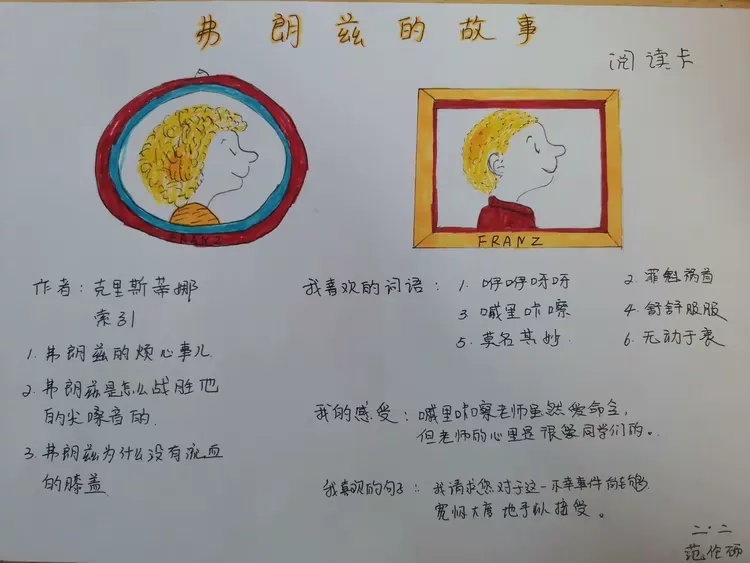 弗朗兹的故事
阅读卡
FRANZ
FRANZ
作者：克里斯蒂娜
索引
1. 弗朗兹的烦心事儿
2. 弗朗兹是怎么战胜他
的尖嗓音的.
3. 弗朗兹为什么没有流血
的膝盖
我喜欢的词语：1. 咿咿呀呀 2. 罪魁祸首
3 嘁里咔嚓 4. 舒舒服服
5. 莫名其妙 6. 无动于衷
我的感受：嘁里咔嚓老师虽然爱命令,
但老师的心里是很爱同学们的。
我喜欢的句子：我请求您对于这一不幸事件能够
宽怀大度地予以接受。
二·二
范